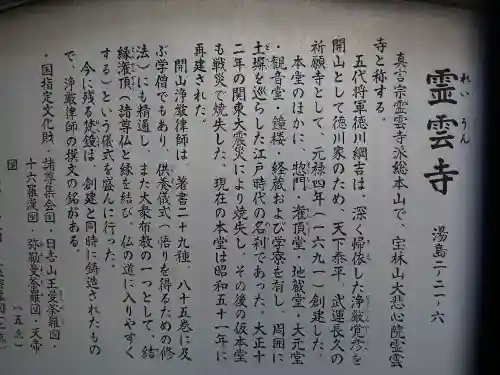 霊雲寺
れいうん
湯島二-二一-六
真言宗霊雲寺派総本山で、宝林山大悲心院霊雲
寺と称する。
五代将軍徳川綱吉は、深く帰依した浄厳覚彦を
開山として徳川家のため、天下泰平、武運長久の
祈願寺として、元禄四年（一六九一）創建した。
本堂のほかに、惣門・潅頂堂・地蔵堂・大元堂
・観音堂・鐘楼・経蔵および学寮を有し、周囲に
土塀を巡らした江戸時代の名刹であった。大正十
二年の関東大震災により焼失し、その後の仮本堂
も戦災で焼失した。現在の本堂は昭和五十一年に
再建された。
開山浄厳律師は、著書二十九種、八十五巻に及
ぶ学僧でもあり、供養儀式（悟りを得るための修
法）にも精通し、また大衆布教の一つとして、結
縁潅頂（諸尊仏と縁を結び、仏の道に入りやすく
する）という儀式を盛んに行った。
今に残る梵鐘は、創建と同時に鋳造されたもの
で、浄厳律師の撰文の銘がある。
・国指定文化財、諸尊集会図・日吉山王曼荼羅図・
十六羅漢図・弥勒曼荼羅図・天帝
図（五点）